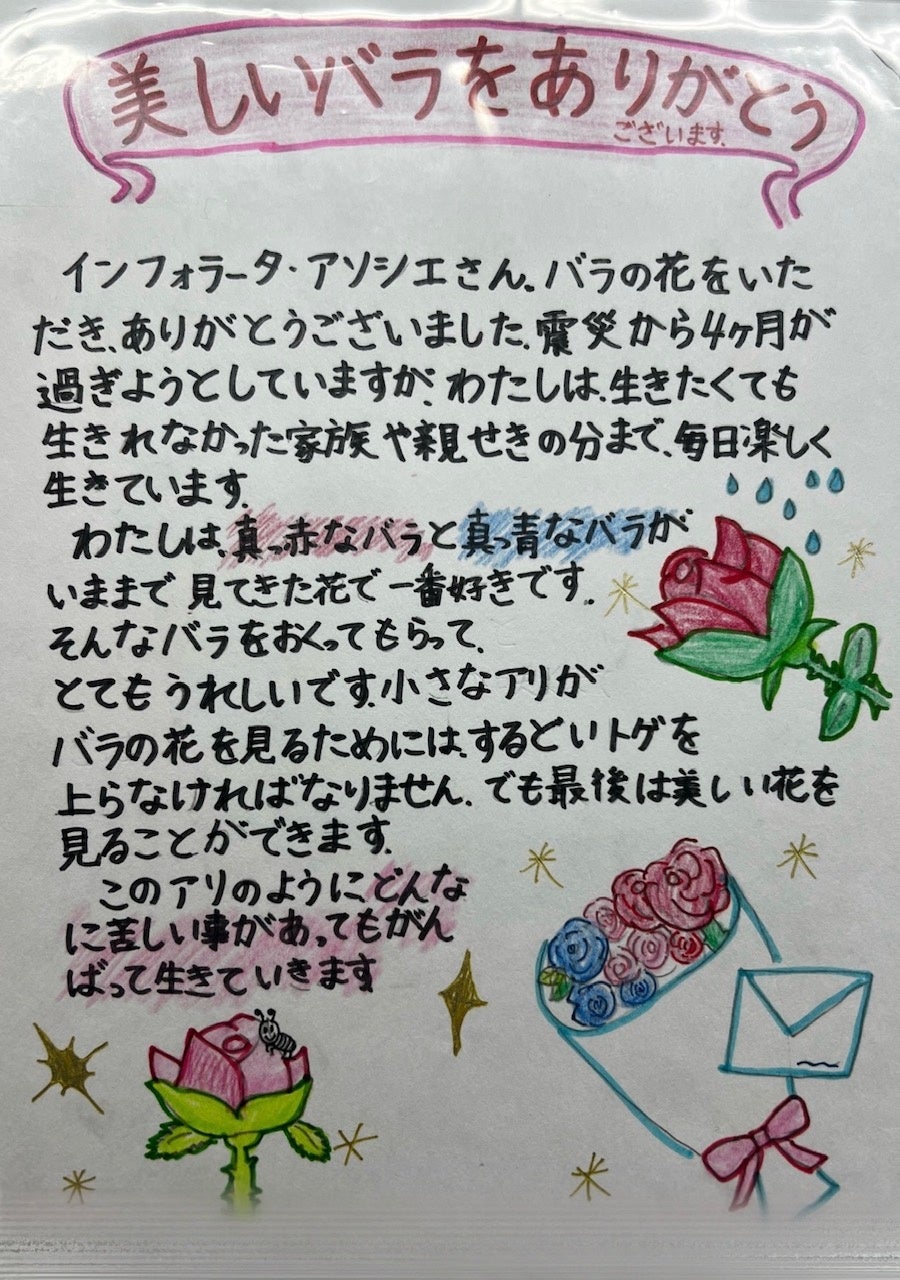 美しいバラをありがとう
ございます.
インフォラータ・アソシエさん。バラの花をいた
だき、ありがとうございました。震災から4ヶ月が
過ぎようとしていますが、わたしは、生きたくても
生きれなかった家族や親せきの分まで、毎日楽しく
生きています。
わたしは、真っ赤なバラと真っ青なバラが
いままで見てきた花で一番好きです。
そんなバラをおくってもらって、
とてもうれしいです。小さなアリが
バラの花を見るためには、するどいトゲを
上らなければなりません。でも最後は美しい花を
見ることができます。
このアリのように、どんな
に苦しい事があってもがん
ばって生きていきます